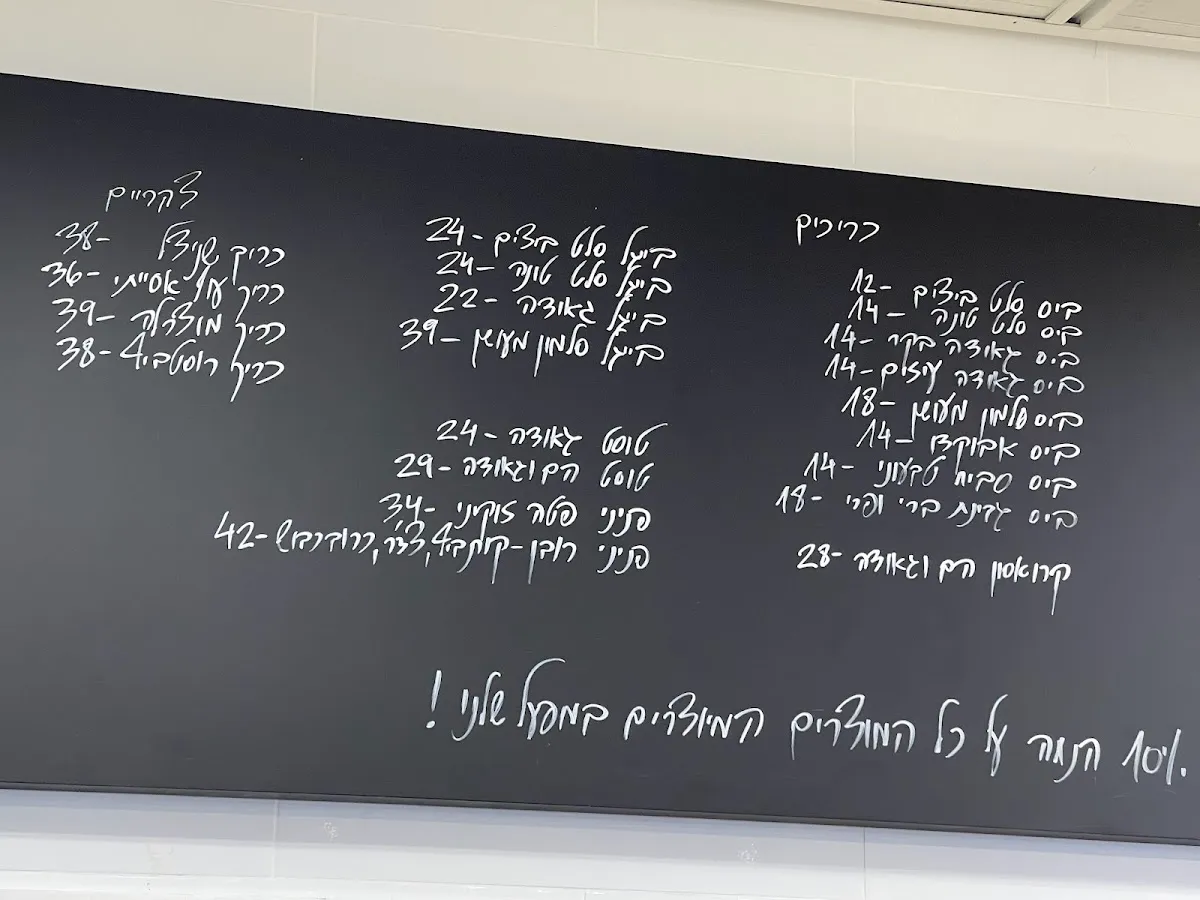 כריכים
ביס סלט ביצים -12
ביס סלט טונה -14
ביס גאודה בקר -14
ביס גאודה עיזים -14
ביס סלמון מעושן -18
ביס אבוקדו -14
ביס סביח טבעוני -14
ביס גבינת ברי ופרי -18
קרואסון הם וגאודה -28
בייגל סלט ביצים -24
בייגל סלט טונה -24
בייגל גאודה -22
בייגל סלמון מעושן -39
טוסט גאודה -24
טוסט הם וגאודה -29
פניני פטה זוקיני -34
פניני רובן -קורנביף, צ'דר, כרוב כבוש -42
כריך שניצל -38
כריך עוף אסייתי -36
כריך מוצרלה -39
כריך רוסטביף -38
10% הנחה על כל המוצרים המיוצרים במפעל שלנו !